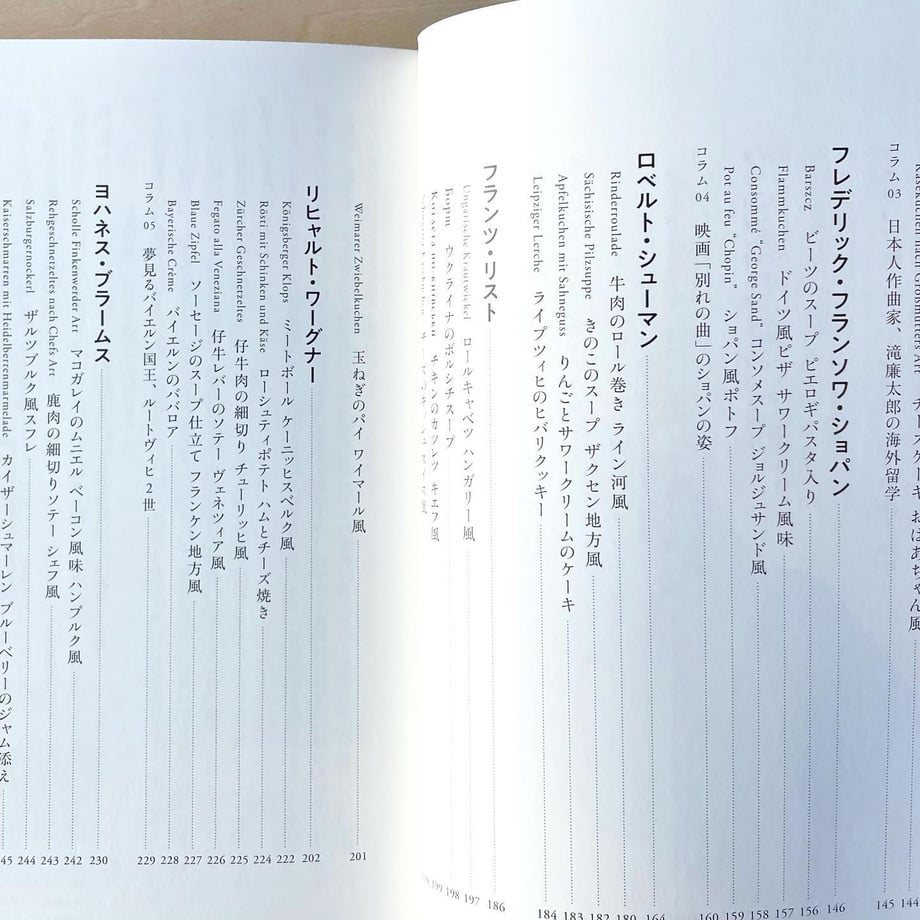 おばあちゃん風 144
コラム 03 日本人作曲家、滝廉太郎の海外留学 145
フレデリック・フランソワ・ショパン 146
Barszcz ビーツのスープ ピエロギパスタ入り 156
Flammkuchen ドイツ風ピザ サワークリーム風味 157
Consommé “George Sand” コンソメスープ ジョルジュサンド風 158
Pot au feu “Chopin” ショパン風ポトフ 159
コラム 04 映画「別れの曲」のショパンの姿 160
ロベルト・シューマン 164
Rinderroulade 牛肉のロール巻き ライン河風 180
Sächsische Pilzsuppe きのこのスープ ザクセン地方風 182
Apfelkuchen mit Sahneguss りんごとサワークリームのケーキ 183
Leipziger Lerche ライプツィヒのヒバリクッキー 184
フランツ・リスト 186
Ungarische Krautwickel ロールキャベツ ハンガリー風 197
Борщ ウクライナのボルシチスープ 198
チキンのカツレツ キエフ風 199
Weimarer Zwiebelkuchen 玉ねぎのパイ ワイマール風 201
リヒャルト・ワーグナー 202
Königsberger Klops ミートボール ケーニッヒスベルク風 222
Rösti mit Schinken und Käse ローシュティポテト ハムとチーズ焼き 224
Zürcher Geschnetzeltes 仔牛肉の細切り チューリッヒ風 225
Fegato alla Veneziana 仔牛レバーのソテー ヴェネツィア風 226
Blaue Zipfel ソーセージのスープ仕立て フランケン地方風 227
Bayerische Crème バイエルンのババロア 228
コラム 05 夢見るバイエルン国王、ルートヴィヒ2世 229
ヨハネス・ブラームス 230
Scholle Finkenwerder Art マコガレイのムニエル ベーコン風味 ハンブルク風 242
Rehgeschnetzeltes nach Chefs Art 鹿肉の細切りソテー シェフ風 243
Salzburgernockerl ザルツブルク風スフレ 244
Kaiserschmarren mit Heidelbeerenmarmelade カイザーシュマーレン ブルーベリーのジャム添え 45